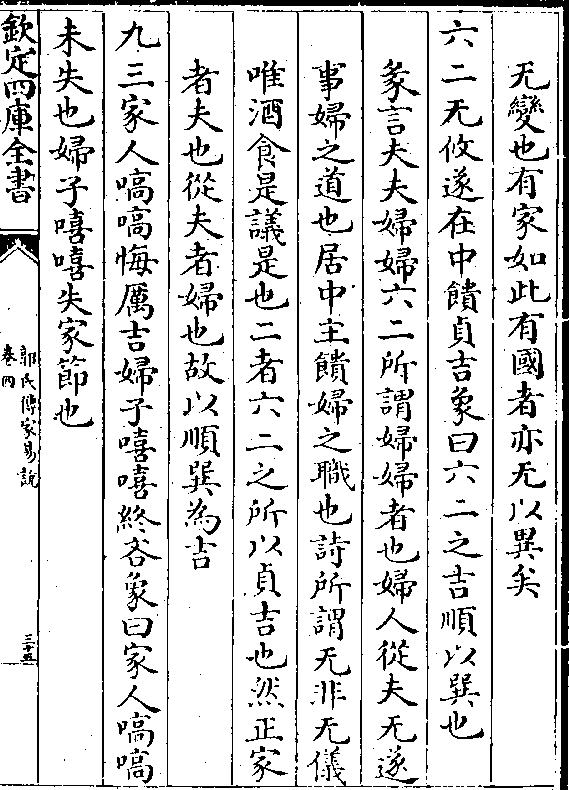 无變也有家如此有國者亦无以異矣
六二无攸遂在中饋貞吉象曰六二之吉順以巽也
彖言夫夫婦婦六二所謂婦婦者也婦人從夫无遂
事婦之道也居中主饋婦之職也詩所謂无非无儀
唯酒食是議是也二者六二之所以貞吉也然正家
者夫也從夫者婦也故以順巽為吉
九三家人嗃嗃悔厲吉婦子嘻嘻終吝象曰家人嗃嗃
未失也婦子嘻嘻失家節也
欽定四庫全書
郭氏傳家易說
卷四
三十五